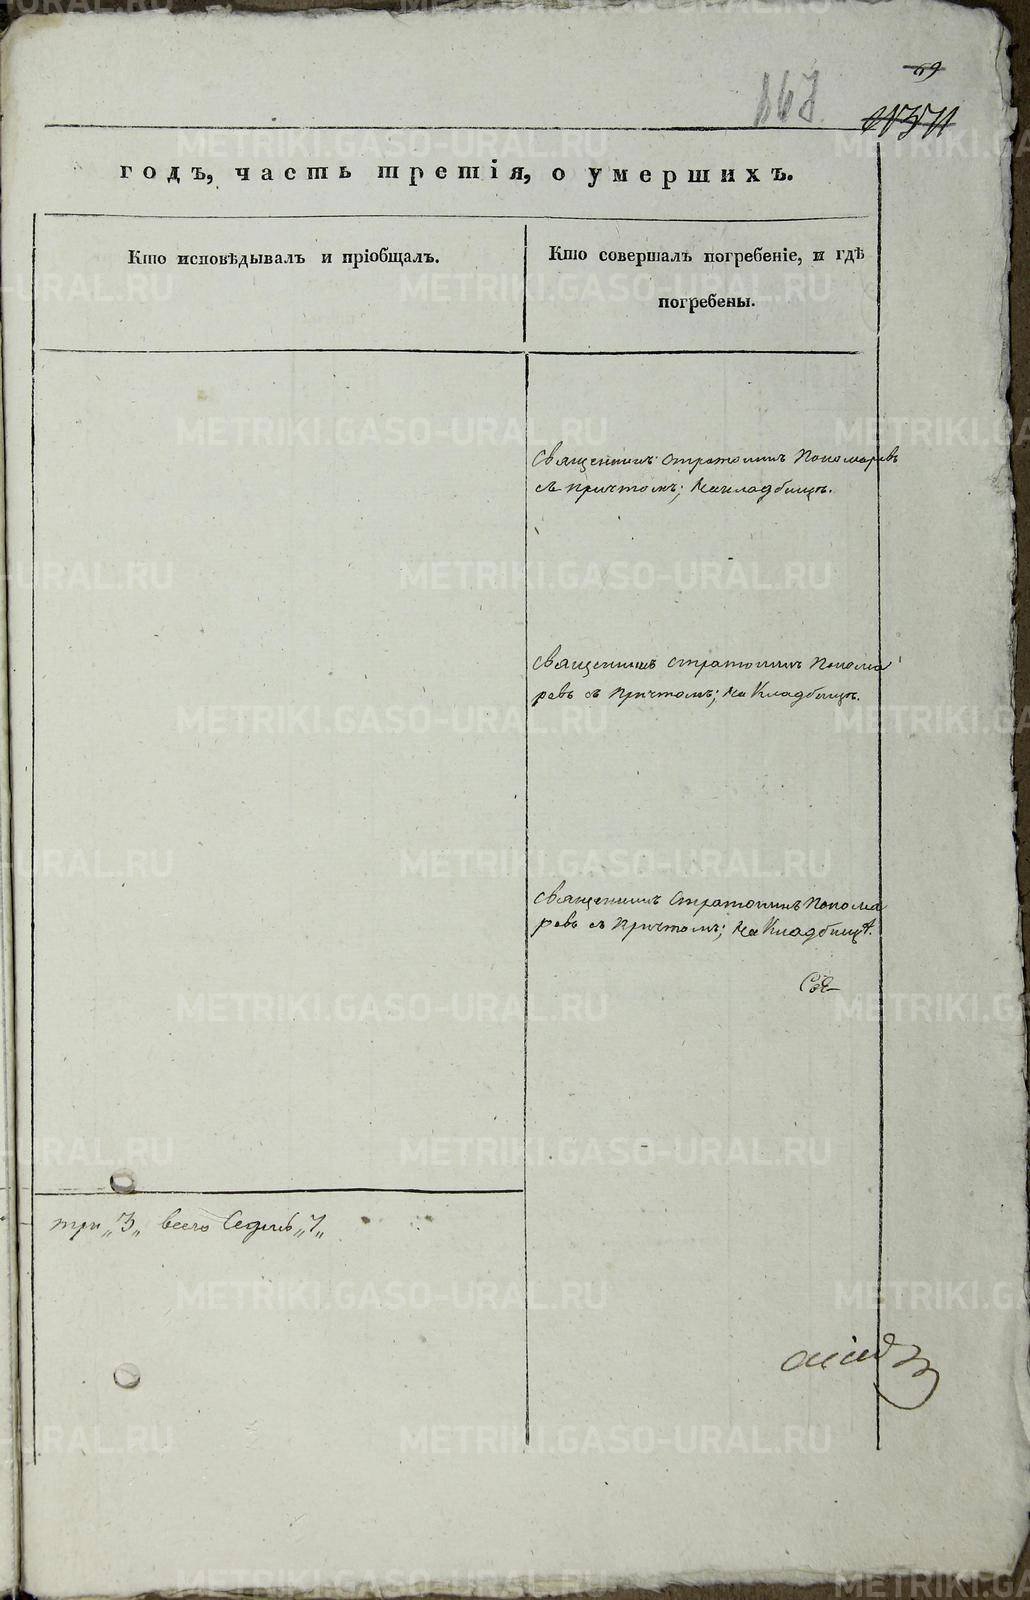 69
167
годъ, часть третія, о умершихъ.
Кто исповѣдывалъ и пріобщалъ.
Кто совершалъ погребеніе, и гдѣ
погребены.
Священникъ Стратоникъ Пономаревъ
съ причтомъ; На кладбищѣ.
Священникъ Стратоникъ Понома
ревъ съ Причтомъ; На Кладбищѣ.
Священникъ Стратоникъ Понома
ревъ съ Причтомъ; На Кладбищѣ.
три „3„ всего Седмь „7„
METRIKI.GASO-URAL.RU